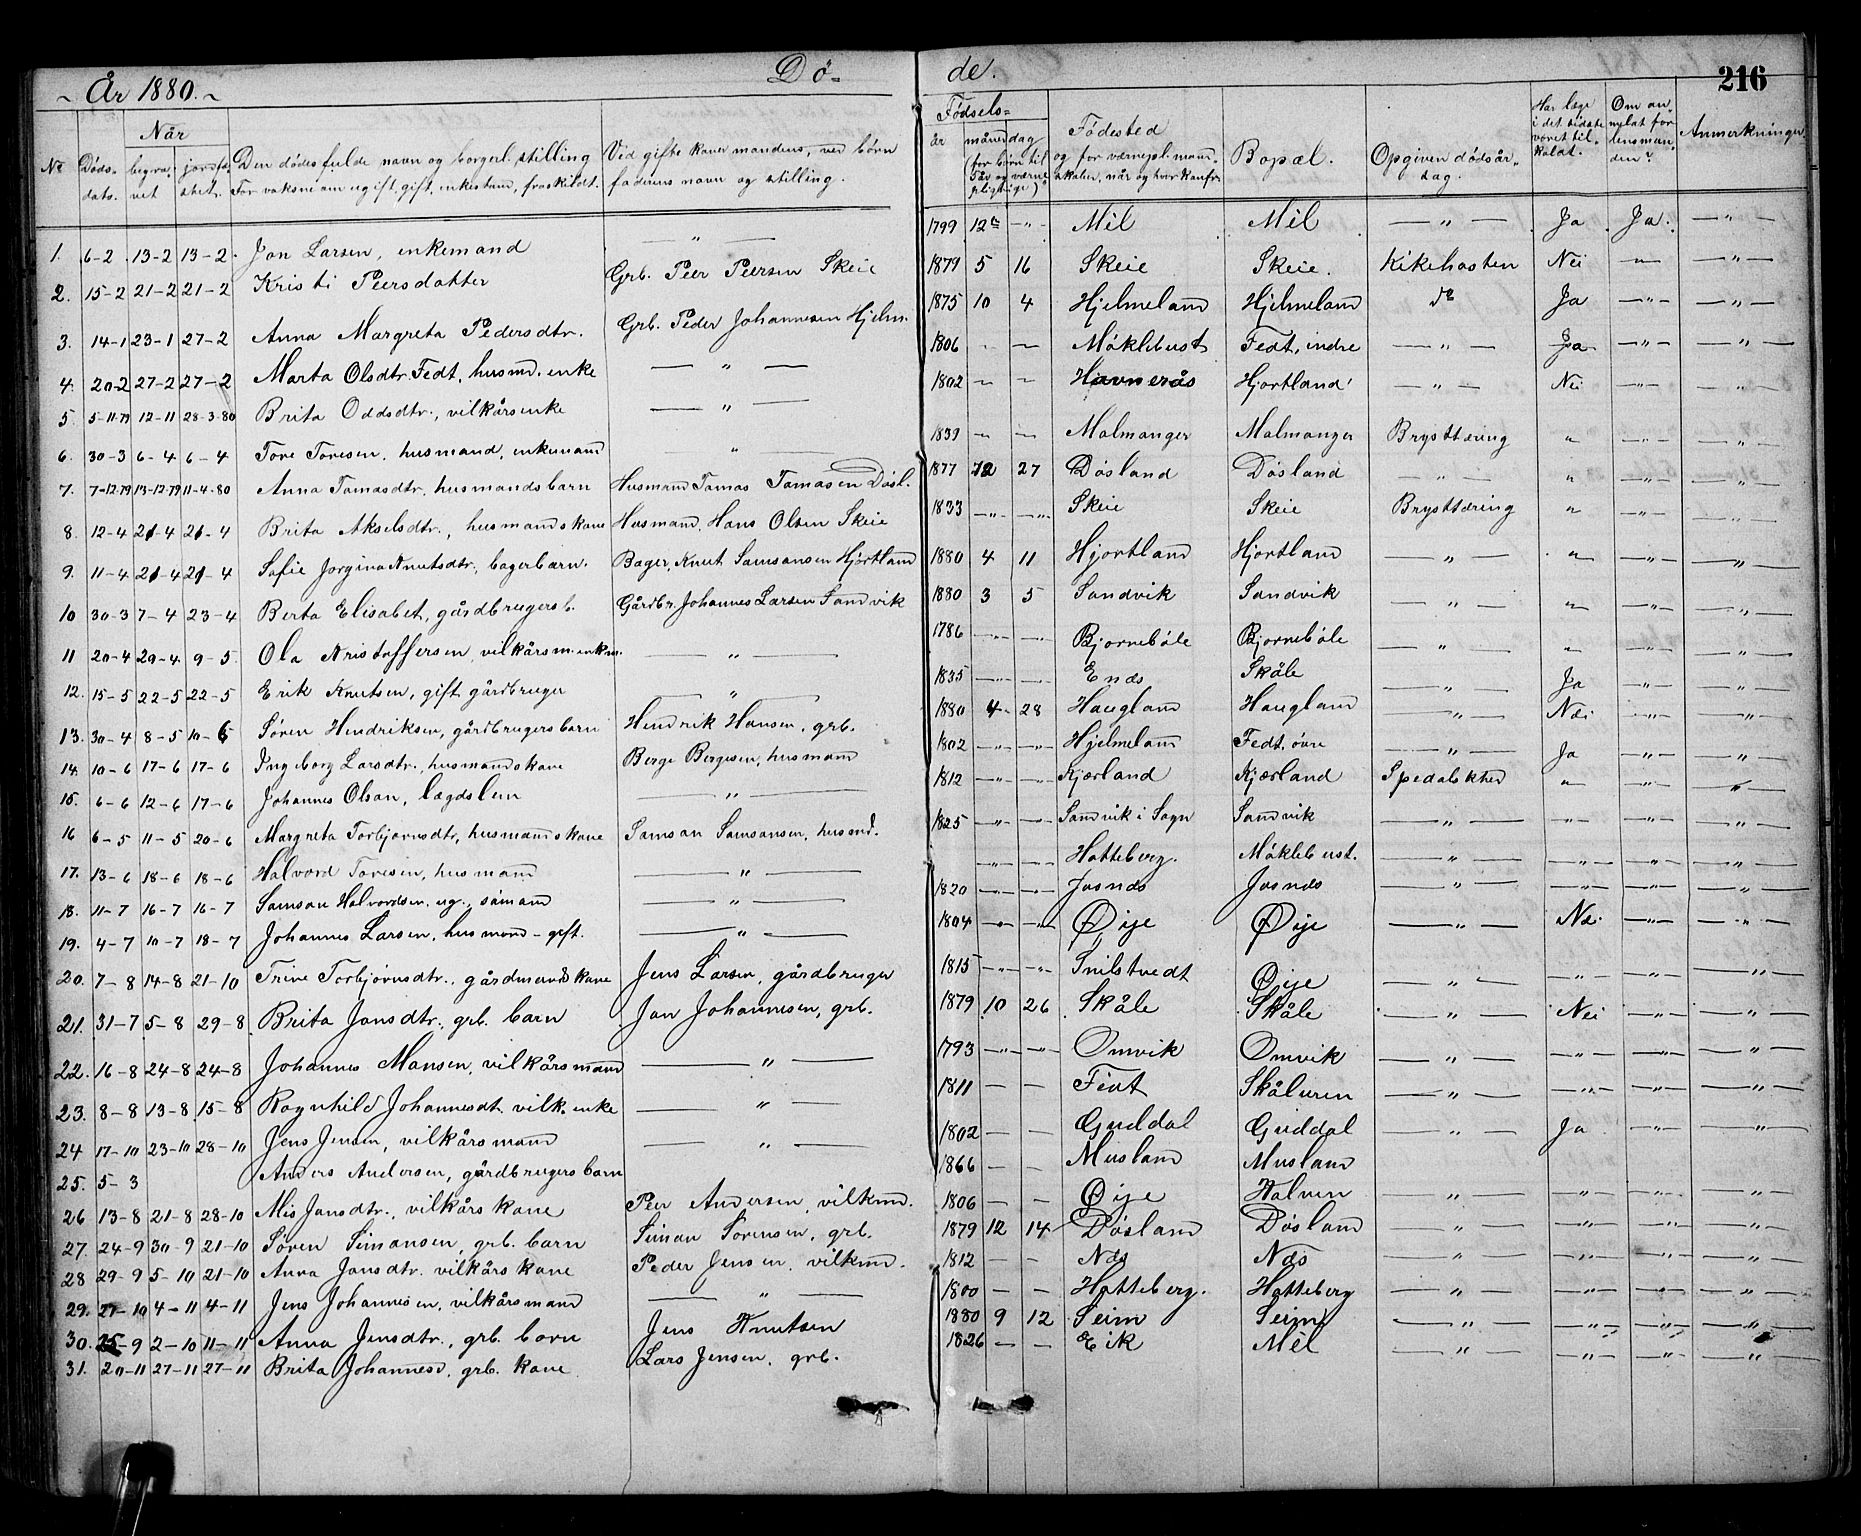 ~ År 1880. ~ Dø- de. 216
Når Fødsels-
No Døds- begra- jordfæ- Den dødes fulde navn og borgerl. stilling Ved gifte koner mandens, ved börn år måned dag Fødested Bopæl. Opgiven dødsår- Har læge Om an- Anmerkninger
dato. vet stet. For voksne om ugift, gift, enkestand, fraskildt. faderens navn og stilling. (for börn til og for værnepl. mand- sag. i det sidste melat for
5 år og værne- skaber, når og hvor konfr. været til- lensman-
pligtige) kaldt. den?
1. 6-2 13-2 13-2 Jon Larsen, enkemand — " — 1799 12te -"- Mel Mel — " — Ja Ja. — " —
2. 15-2 21-2 21-2 Kristi Peersdatter Grb. Peer Peersen Skeie 1879 5 16 Skeie Skeie. Kikehosten Nei — " — — " —
3. 14-1 23-1 27-2 Anna Margreta Pedersdtr. Grb. Peder Johannesen Hjelm. 1875 10 4 Hjelmeland Hjelmeland do Ja — " — — " —
4. 20-2 27-2 27-2 Marta Olsdtr. Fedt, husmd. enke — " — 1806 — — Möklebust Fedt, indre — " — Ja — " — — " —
5. 5-11-79 12-11 28-3-80 Brita Oddsdtr., vilkårsenke — " — 1802 — — Havnerås Hjortland — " — Nei — " — — " —
6. 30-3 6-4 6-4 Tore Toresen, husmand, enkemand " — 1839 — — Malmanger Malmanger Brysttæring " — " — — " —
7. 7-12-79 13-12-79 11-4-80 Anna Tomasdtr. husmandsbarn Husmand Tomas Tomasen Døsl. 1877 12 27 Døsland Døsland — " — " — " — — " —
8. 12-4 21-4 21-4 Brita Akselsdtr., husmandskone Husmand, Hans Olsen Skeie 1833 — " — — " — Skeie Skeie Brysttæring " — " — — " —
9. 11-4 21-4 21-4 Sofie Jorgina Knutsdtr., bagerbarn. Bager, Knut Samsonsen Hjortland 1880 4 11 Hjortland Hjortland — " — " — " — — " —
10 30-3 7-4 23-4 Berta Elisabet, gårdbrugersb. Gårdbr. Johannes Larsen Sandvik 1880 3 5 Sandvik Sandvik — " — " — " — — " —
11 20-4 29-4 9-5 Ola Kristoffersen, vilkårsm. enkm. — " — 1786 — " — — " — Bjørnebøle Bjørnebøle — " — " — " — — " —
12. 15-5 22-5 22-5 Erik Knutsen, gift gårdbruger — " — 1835 — " — — " — Enes Skåle — " — Ja — " — — " —
13. 30-4 8-5 10-6 Søren Hendriksen, gårdbrugersbarn Hendrik Hansen, grb. 1880 4 28 Haugland Haugland — " — Nei — " — — " —
14. 10-6 17-6 17-6 Ingeborg Larsdtr., husmandskone Berge Bergesen, husmand 1802 — " — — " — Hjelmeland Fedt, øvre — " — Ja — " — — " —
15. 6-6 12-6 17-6 Johannes Olson, lægdslem — " — 1812 — " — — " — Kjærland Kjærland Spedalskhed " — " — — " —
16 6-5 11-5 20-6 Margreta Torbjørnsdtr, husmandskone Samson Samsonsen, husmd. 1825 — " — — " — Sandvik i Sogn Sandvik — " — — " — — " — — " —
17. 13-6 18-6 18-6 Halvord Toresen, husmand — " — — " — — " — Hatteberg. Mökleb ust. — " — — " — — " — — " —
18. 11-7 16-7 16-7 Samson Halvordsen. ug., sömand — " — 1820 — " — — " — — " — — " — — " — — " —
19. 4-7 10-7 18-7 Johannes Larsen, husmand - gift. — " — 1804 — " — — " — Øije Øije — " — Nei — " — — " —
20. 7-8 14-8 21-10 Trine Torbjørnsdtr., gårdmandskone Jens Larsen, gårdbruger 1815 — " — — " — Snilstvedt Øije — " — — " — — " — — " —
21. 31-7 5-8 29-8 Brita Jonsdtr., grb. barn Jon Johannesen, grb. 1879 10 26 Skåle Skåle — " — Nei — " — — " —
22. 16-8 24-8 24-8 Johannes Monsen, vilkårsmand — " — 1793 — " — — " — Omvik Omvik — " — — " — — " — — " —
23. 8-8 13-8 15-8 Ragnhild Johannesdt. vilk. enke — " — 1811 — — Fedt Skåluren — " — — " — — " — — " —
24 17-10 23-10 28-10 Jens Jensen, vilkårsmand — " — 1802 — — Guddal Guddal — " — Ja — " — — " —
25. 5-3 Anders Andersen, gårdbrugersbarn 1866 — — Musland Musland
26 13-8 21-8 28-10 Mis Jonsdtr., vilkårskone Peer Andersen, vilkmd. 1806 — — Øije Halven — " — — " — — " — — " —
27. 24-9 30-9 21-10 Søren Simonsen, grb. barn Simon Sörensen, grb. 1879 12 14 Døsland Døsland — " — — " — — " — — " —
28 29-9 5-10 21-10 Anna Jonsdtr. vilkårskone Peder Jensen, vilkmd. 1812 — — Næs Næs — " — — " — — " — — " —
29. 27-10 4-11 4-11 Jens Johannesen, vilkårsmand — " — 1800 — — Hatteberg. Hatteberg — " — — " — — " — — " —
30. 25-9 2-10 11-11 Anna Jensdtr., grb. barn Jens Knutsen 1880 9 12 Seim Seim — " — — " — — " — — " —
31. 20-11 27-11 27-11 Brita Johannesd, grb. kone Lars Jensen, grb. 1826 — — Eik Mel — " — — " — — " — — " —